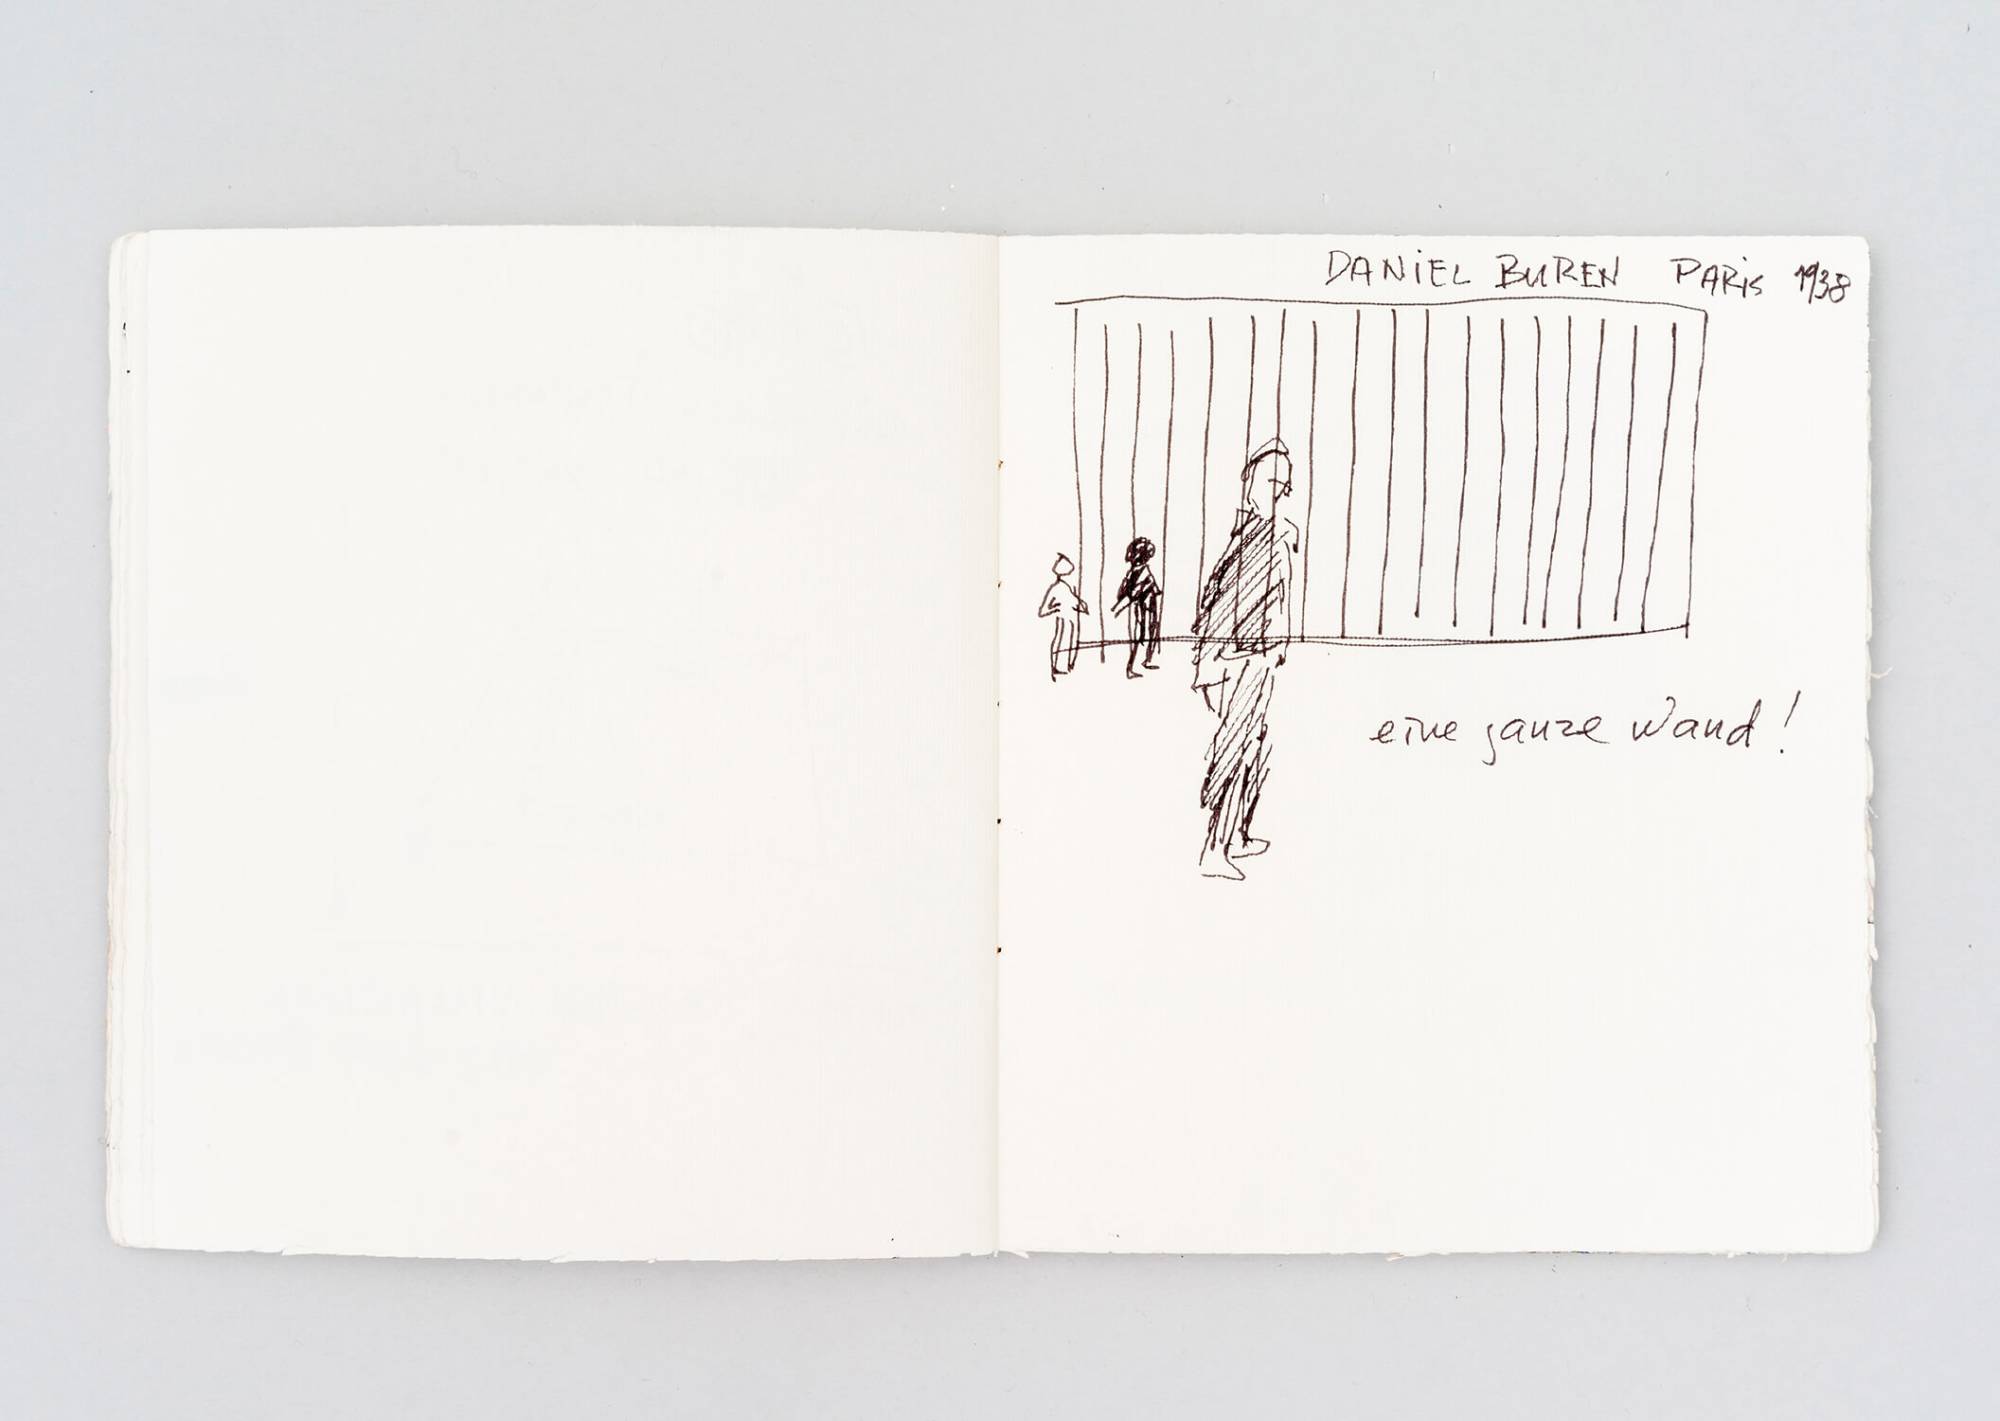 DANIEL BUREN PARIS 1938
eine ganze Wand!